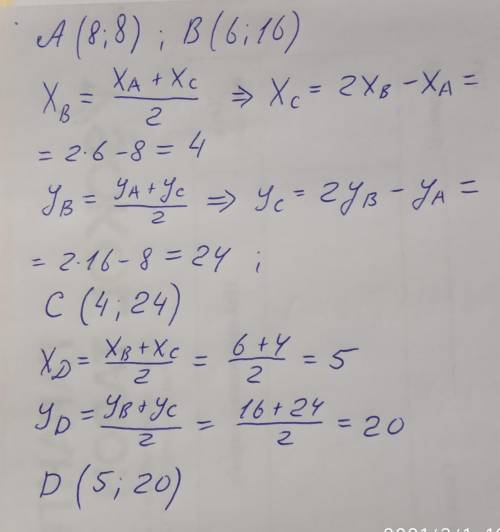 A (8;8) ; B (6;16)
X_B = (X_A + X_C)/2 ⇒ X_C = 2X_B − X_A =
= 2·6 − 8 = 4
y_B = (y_A + y_C)/2 ⇒ y_C = 2y_B − y_A =
= 2·16 − 8 = 24 ;
C (4; 24)
X_D = (X_B + X_C)/2 = (6 + 4)/2 = 5
y_D = (y_B + y_C)/2 = (16 + 24)/2 = 20
D (5; 20)